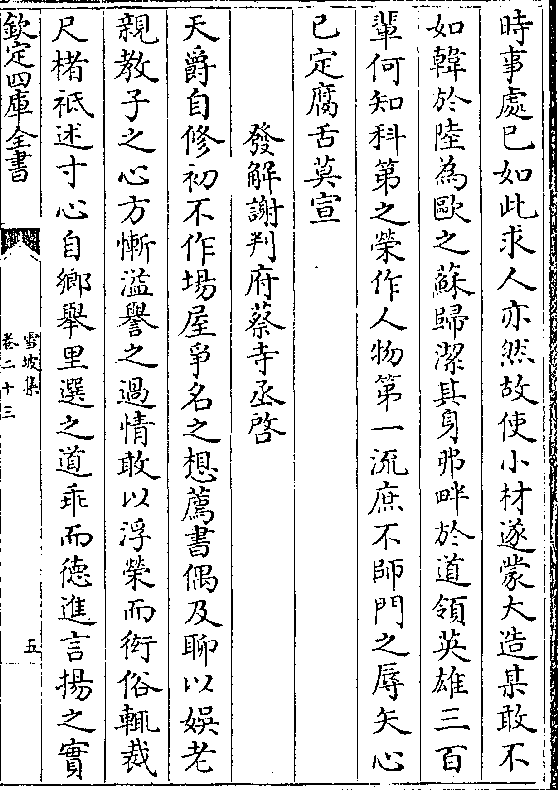 時事處已如此求人亦然故使小材遂蒙大造某敢不
如韓於陸為歐之蘇歸潔其身弗畔於道領英雄三百
輩何知科第之榮作人物第一流庶不師門之辱矢心
已定腐舌莫宣
發解謝判府蔡寺丞啓
天爵自修初不作場屋爭名之想薦書偶及聊以娱老
親教子之心方慚溢譽之過情敢以浮榮而衒俗輒裁
尺楮祗述寸心自鄉舉里選之道乖而徳進言揚之實
欽定四庫全書
雪坡集
卷二十三
五